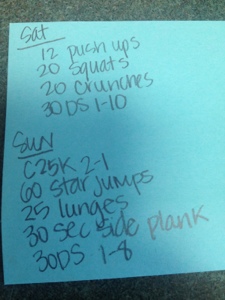 Sat
12 push ups
20 squats
20 crunches
30DS 1-10
Sun
C25K 2-1
60 star jumps
25 lunges
30 sec side plank
30DS 1-8